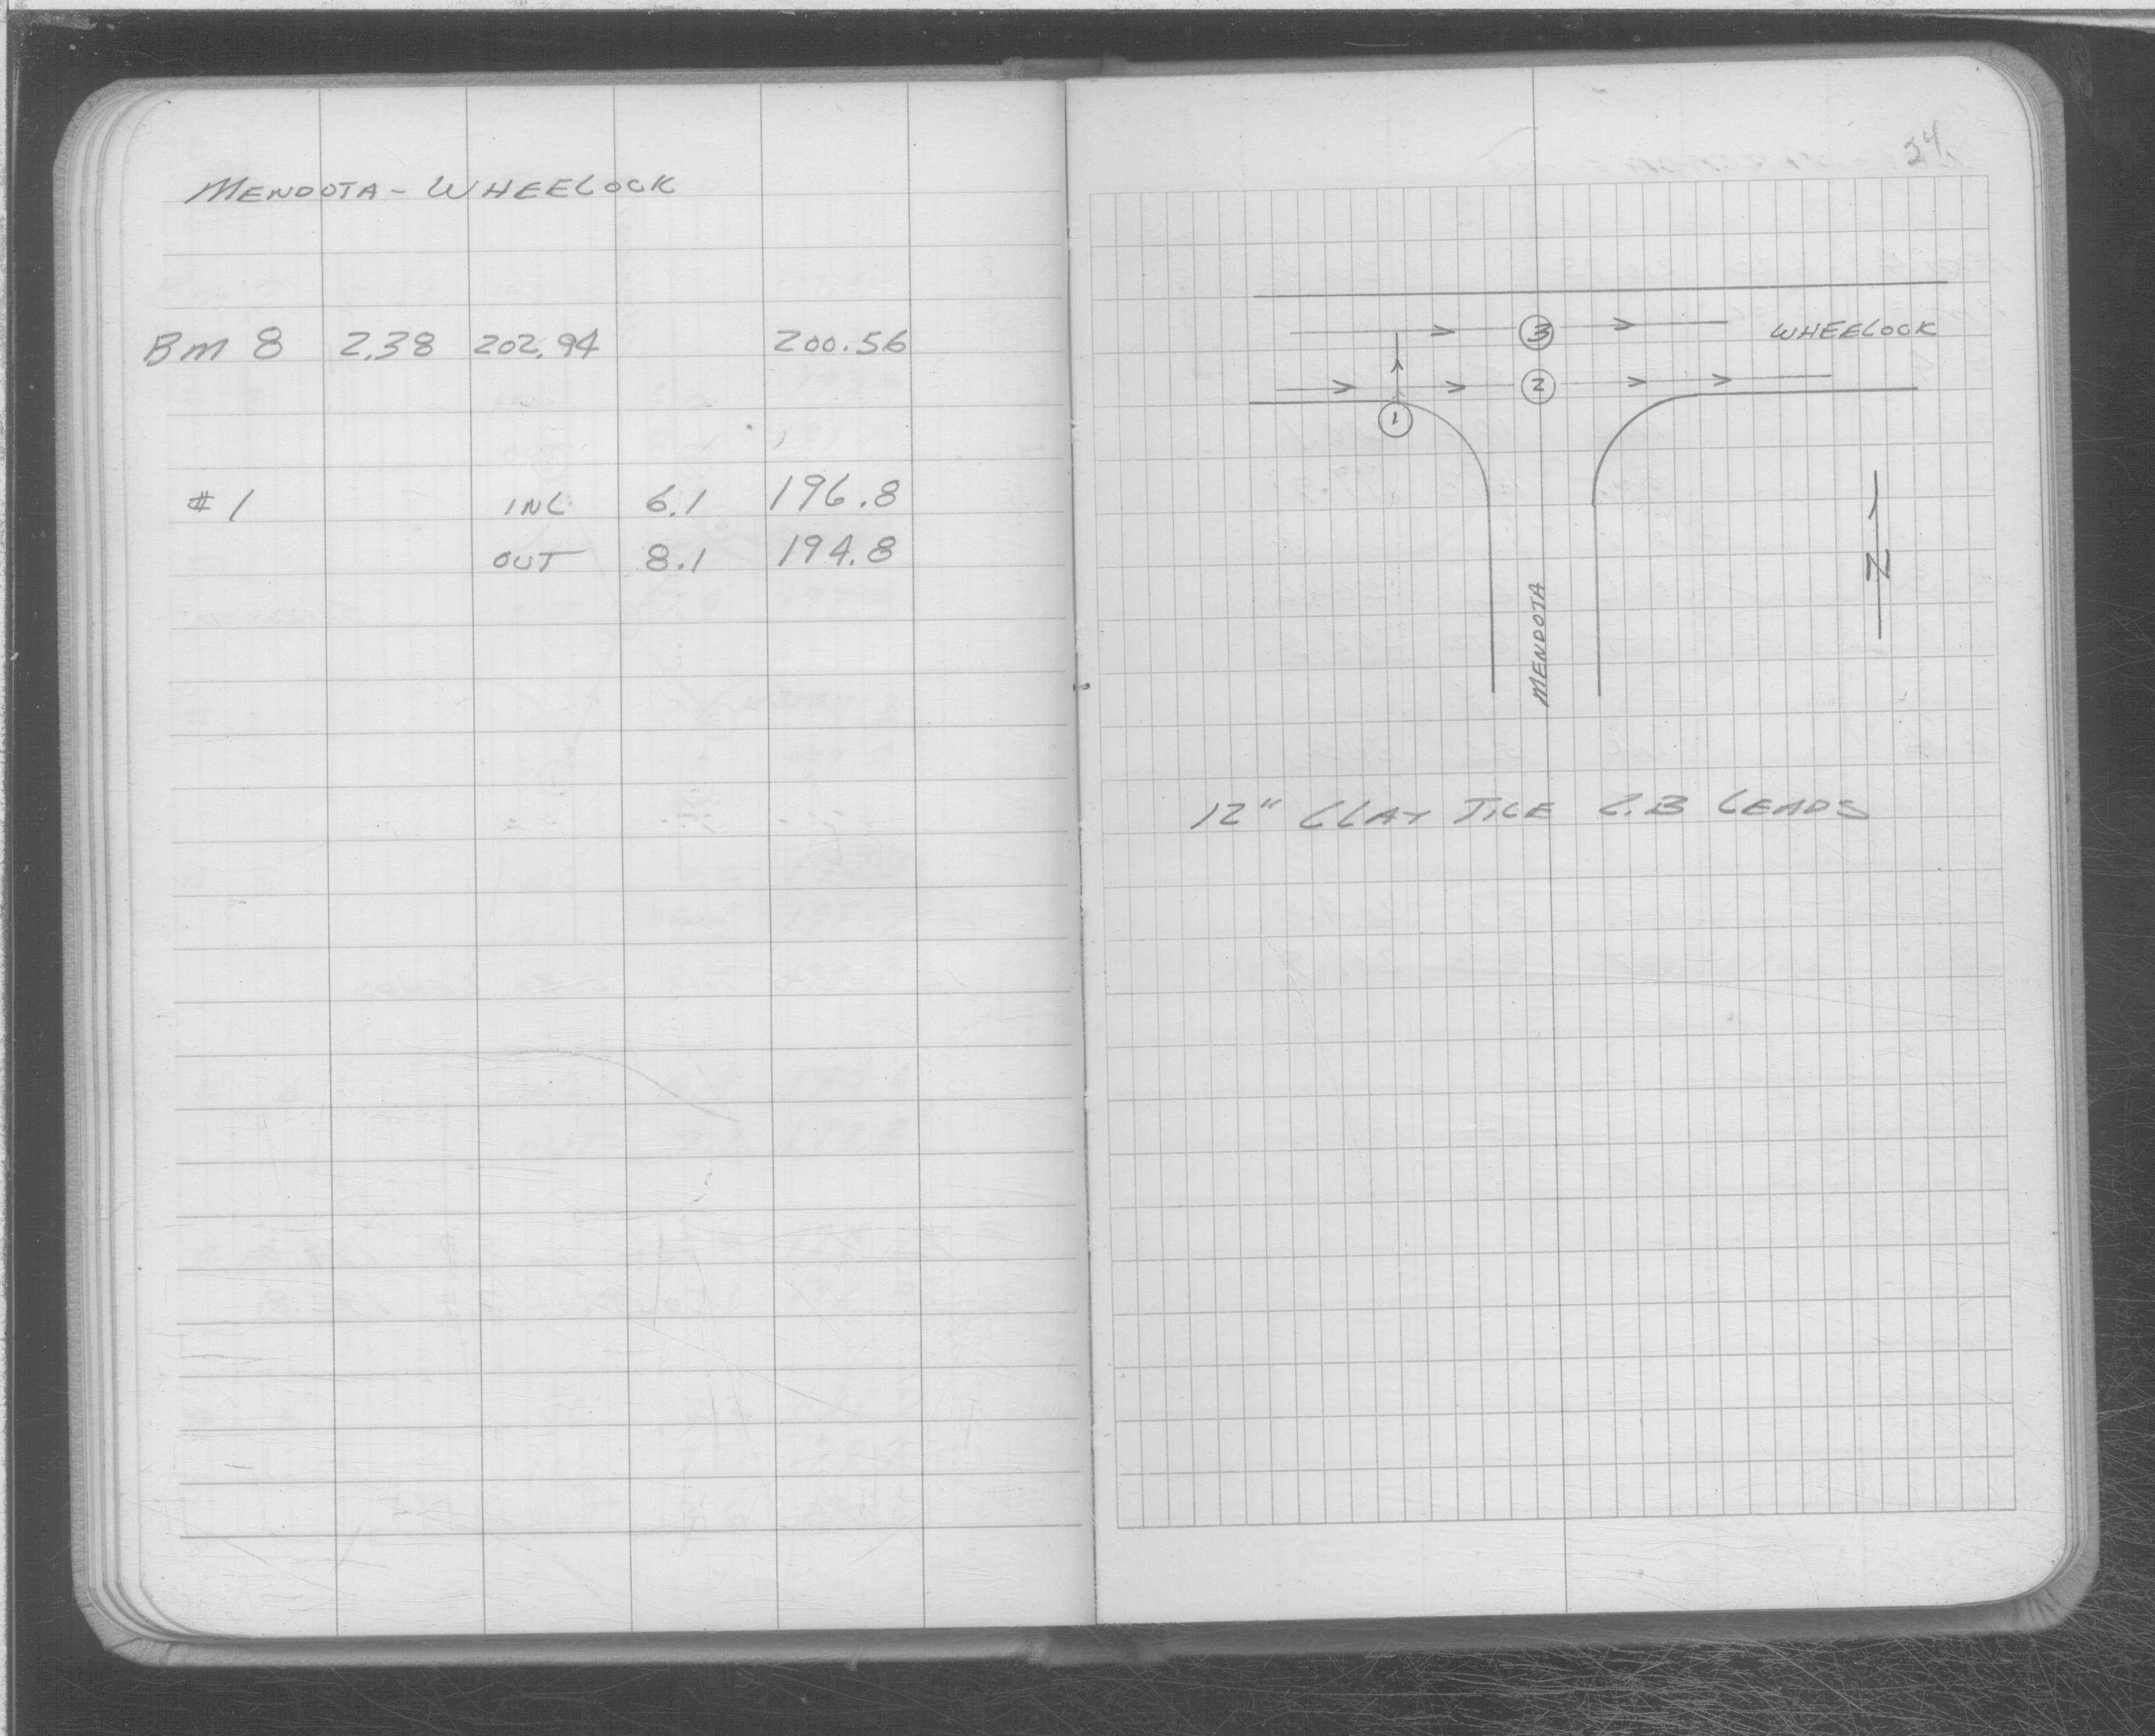 MENDOTA - WHEELOCK
BM 8 2.38 202.94 200.56
# 1 INL 6.1 196.8
OUT 8.1 194.8
24
3 WHEELOCK
2
1
N
MENDOTA
12" CLAY TILE C.B LEADS